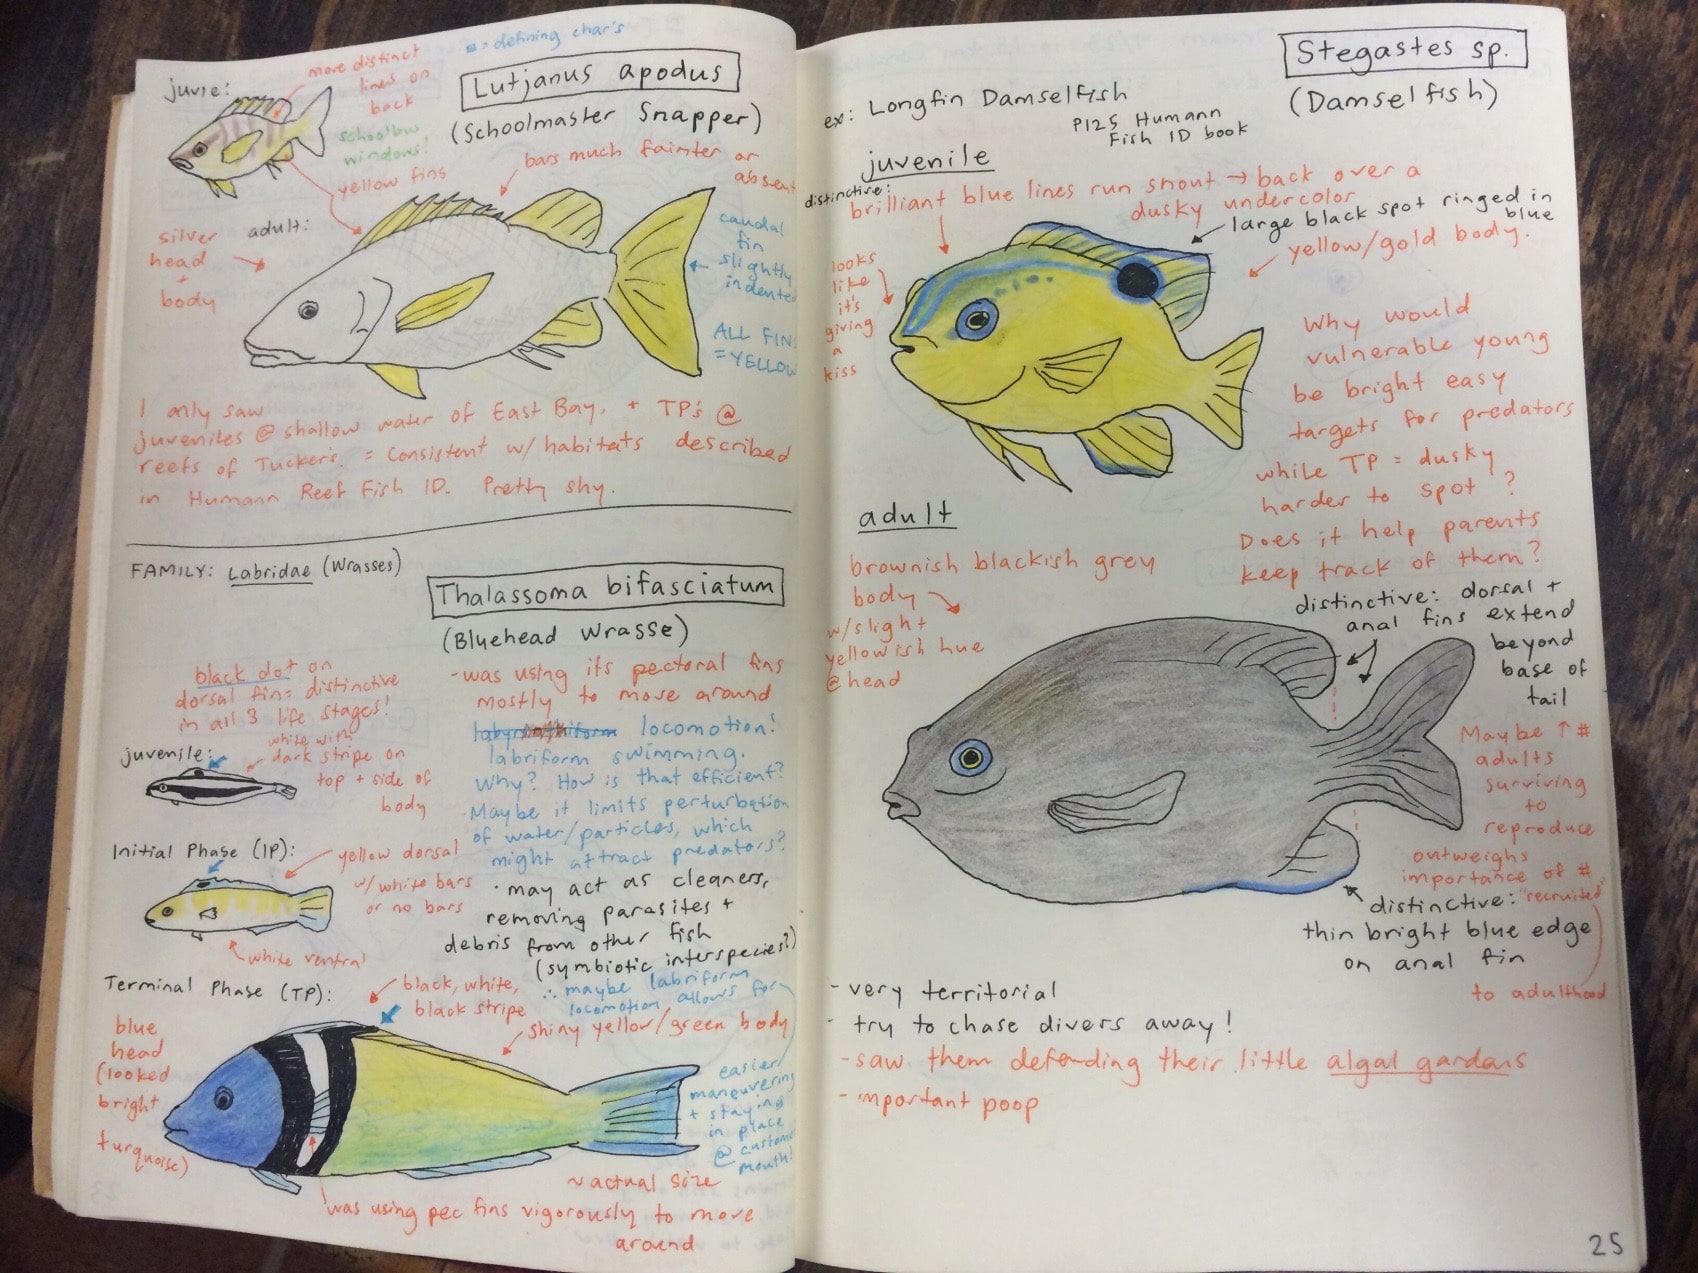 juvie:
more distinct
lines on
back
= defining char's
Lutjanus apodus
(Schoolmaster Snapper)
schoolbus
windows!
yellow fins
bars much fainter or
absent
adult:
silver
head
+
body
caudal
fin
slightly
indented
ALL FINS
= YELLOW
I only saw
juveniles @ shallow water of East Bay, + TP's @
reefs of Tucker's. = Consistent w/ habitats described
in Humann Reef Fish ID. Pretty shy.
FAMILY: Labridae (Wrasses)
Thalassoma bifasciatum
(Bluehead Wrasse)
black dot on
dorsal fin = distinctive
in all 3 life stages!
juvenile:
white with
dark stripe on
top + side of
body
Initial Phase (IP):
yellow dorsal
w/ white bars
or no bars
white ventral
Terminal Phase (TP):
black, white,
black stripe
blue
head
(looked
bright
turquoise)
shiny yellow/green body
- was using its pectoral fins
mostly to move around
locomotion!
labriform swimming.
Why? How is that efficient?
Maybe it limits perturbation
of water/particles, which
might attract predators?
· may act as cleaners,
removing parasites +
debris from other fish
(symbiotic interspecies?)
∴ maybe labriform
locomotion allows for
easier
maneuvering
+ staying
in place
@ customer
mouth!
~ actual size
was using pec fins vigorously to move
around
Stegastes sp.
(Damselfish)
ex: Longfin Damselfish
P125 Humann
Fish ID book
juvenile
distinctive:
brilliant blue lines run snout → back over a
dusky undercolor
large black spot ringed in
blue
yellow/gold body.
looks
like
it's
giving
a
kiss
Why would
vulnerable young
be bright easy
targets for predators
while TP = dusky
harder to spot?
Does it help parents
keep track of them?
adult
brownish blackish grey
body
w/slight
yellowish hue
@ head
distinctive: dorsal +
anal fins extend
beyond
base of
tail
Maybe ↑ #
adults
surviving
to
reproduce
outweighs
importance of #
"recruited"
to adulthood
distinctive:
thin bright blue edge
on anal fin
- very territorial
- try to chase divers away!
- saw them defending their little algal gardens
- important poop
25